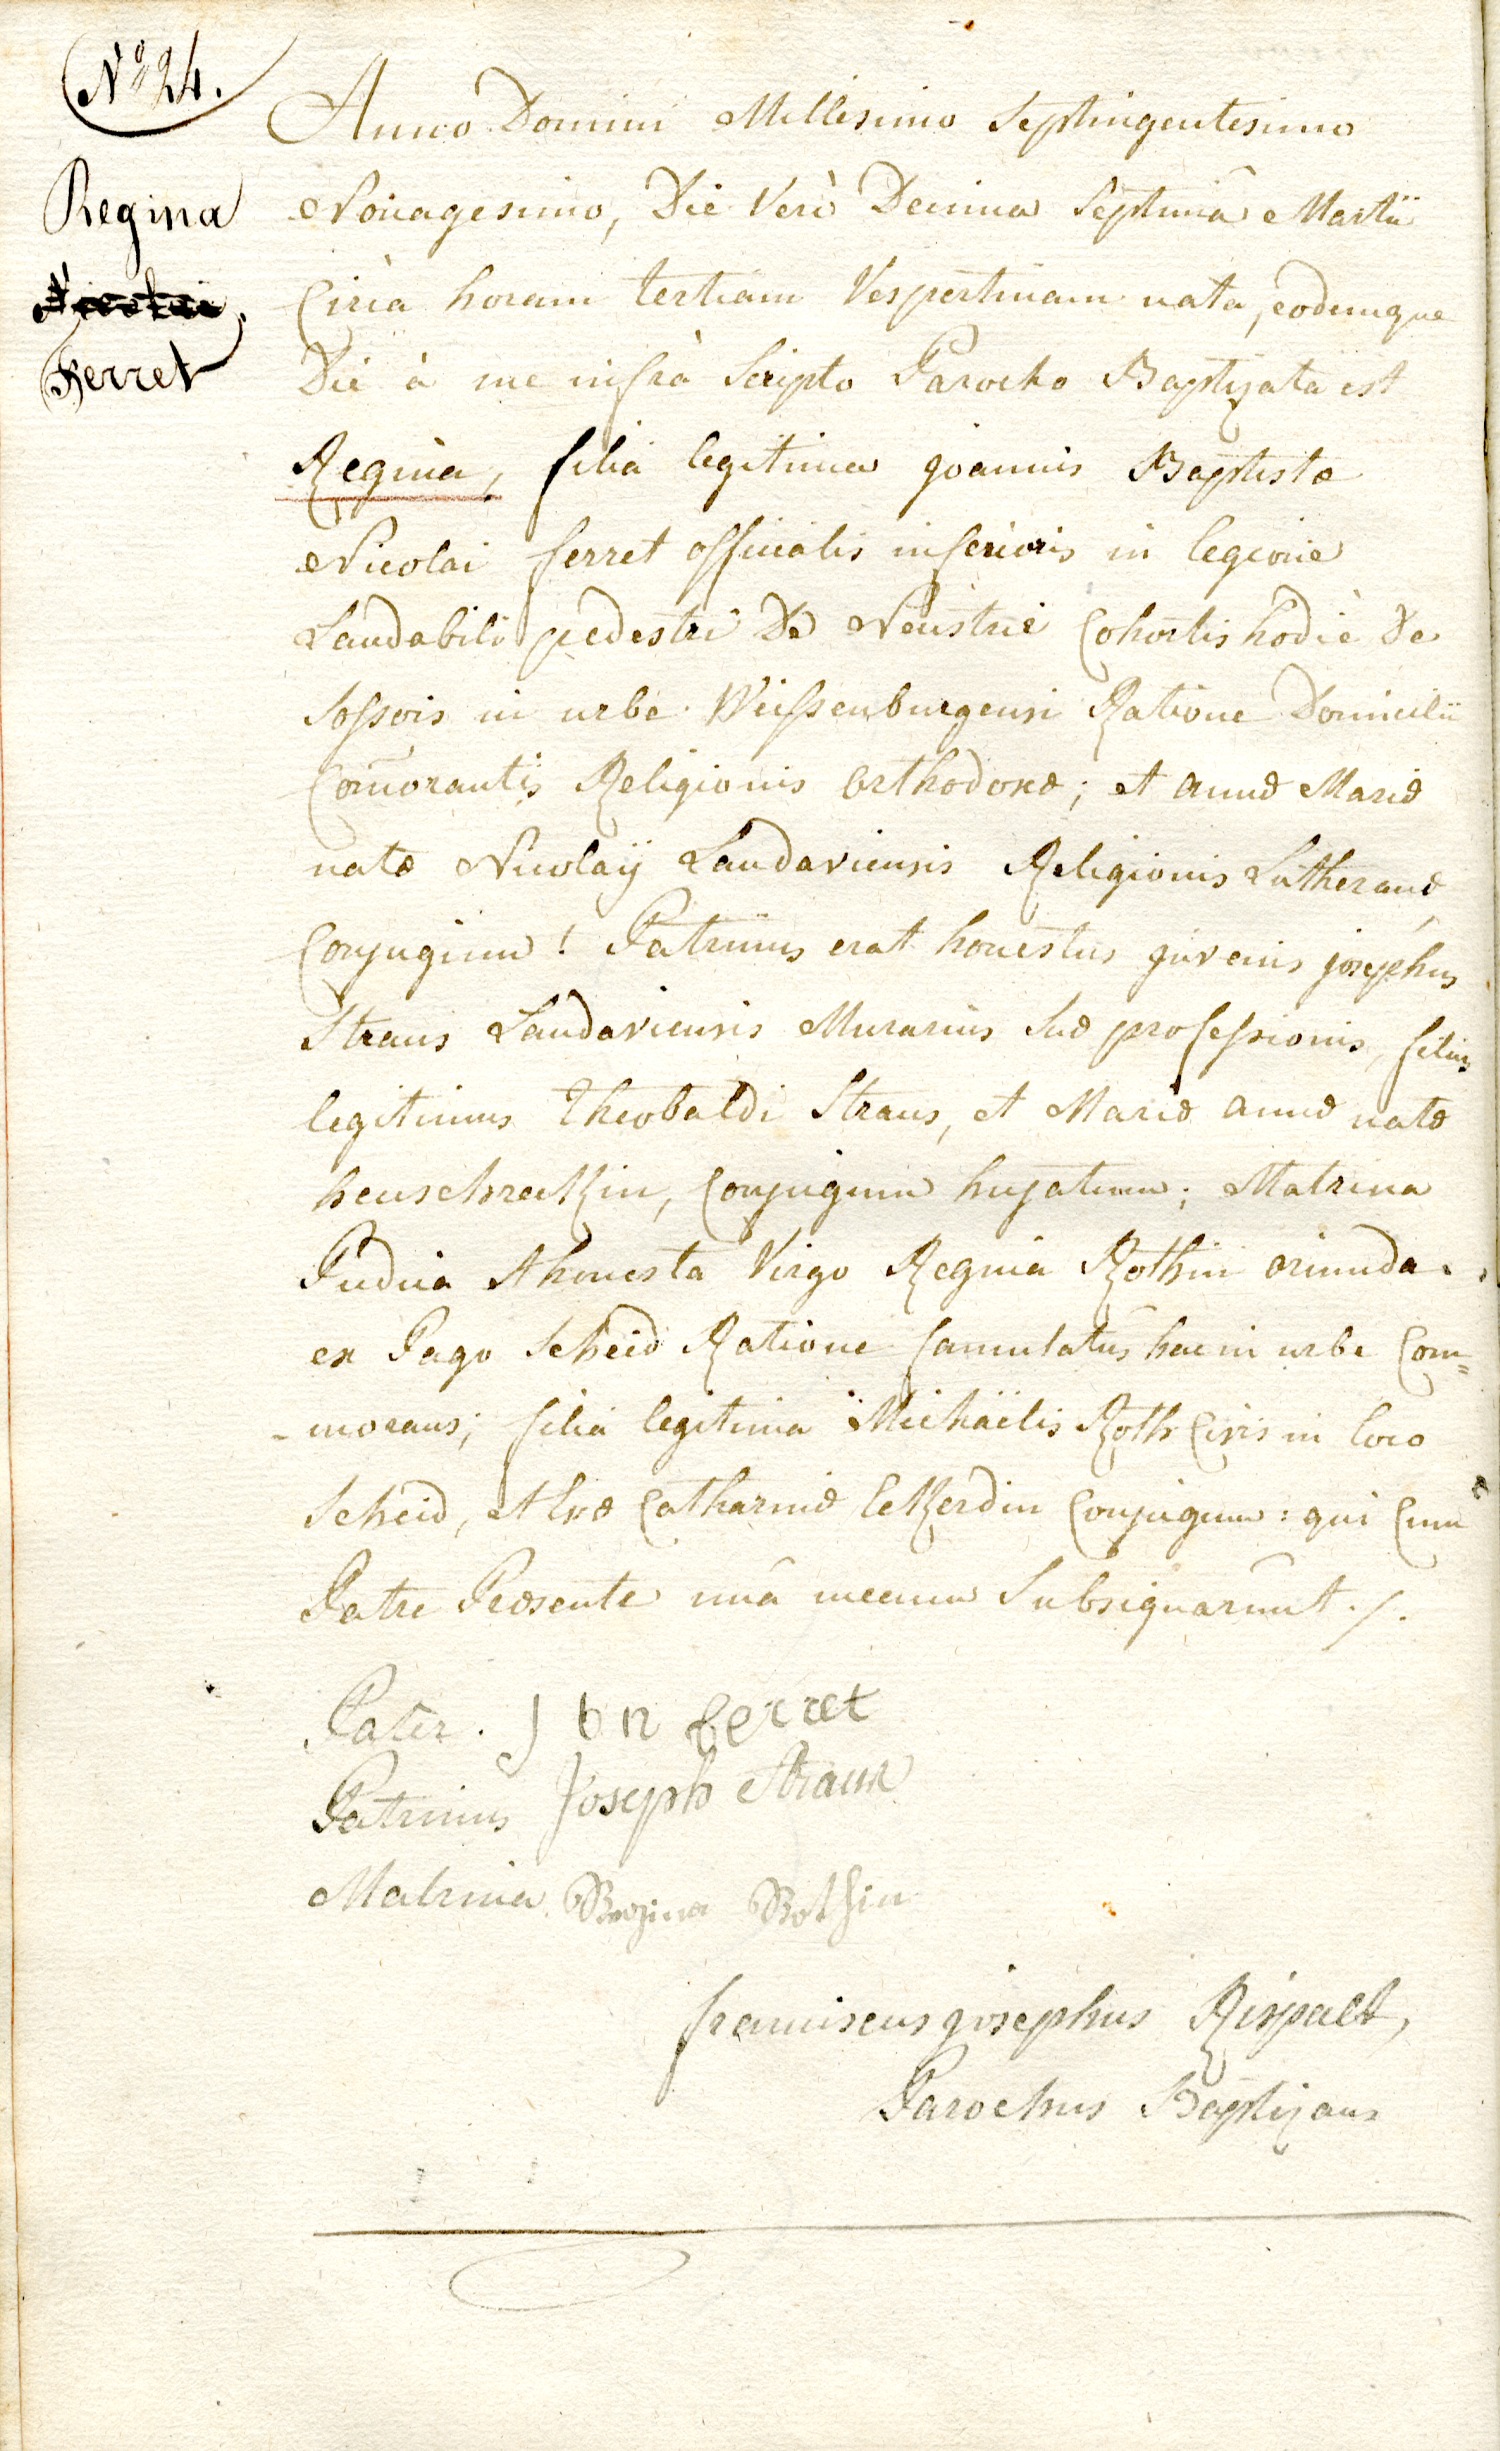 Nº 24.
Regina
Ferret
Anno Domini Millesimo Septingentesimo
Nonagesimo, Die Verò Decima Septimâ Martii
Circa horam tertiam Vespertinam nata, eodemque
Die à me infrà Scripto Parocho Baptizata est
Regina, filia legitima Joannis Baptistæ
Nicolai ferret officialis inferioris in legione
Laudabili pedestri De Neustrie Cohortis hodiè De
Sossois in urbe Weissenburgensi Ratione Domicilii
Com̄orantis Religionis orthodoxæ; et annæ Mariæ
natæ Nicolaÿ Landaviensis Religionis Lutheranæ
Conjugum! Patrinus erat honestus juvenis josephus
Straus Landaviensis Murarius Suæ professionis, filius
legitimus Theobaldi Straus, et Mariæ annæ natæ
heuschreckin, Conjugum hujatum; Matrina
Pudica et honesta Virgo Regina Rothin oriunda
ex Pago Scheid Ratione famulatûs hac in urbe Com=
-morans; filia legitima Michaëlis Roth Civis in loco
Scheid, et Evæ Catharinæ Conjugum: qui Cum
Patre Præsente unâ mecum Subsignarunt ./.
Pater. J b n ferret
Patrinus Joseph Straus
Matrina Regina Rothin
franciscus josephus Rispalt,
Parochus Baptizans